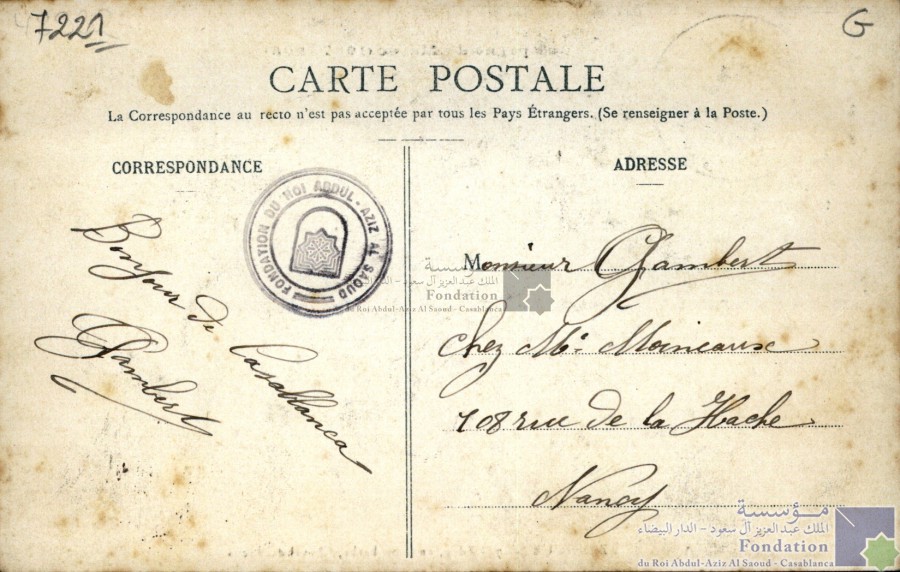 7221
G
CARTE POSTALE
La Correspondance au recto n'est pas acceptée par tous les Pays Étrangers. (Se renseigner à la Poste.)
CORRESPONDANCE
ADRESSE
FONDATION DU ROI ABDUL-AZIZ AL SAOUD
Bonjour de
Casablanca
Gambert
Monsieur Gambert
chez Mr Moineaux
108 rue de la Hache
Nancy
مؤسسة
الملك عبد العزيز آل سعود - الدار البيضاء
Fondation
du Roi Abdul-Aziz Al Saoud - Casablanca
مؤسسة
الملك عبد العزيز آل سعود - الدار البيضاء
Fondation
du Roi Abdul-Aziz Al Saoud - Casablanca